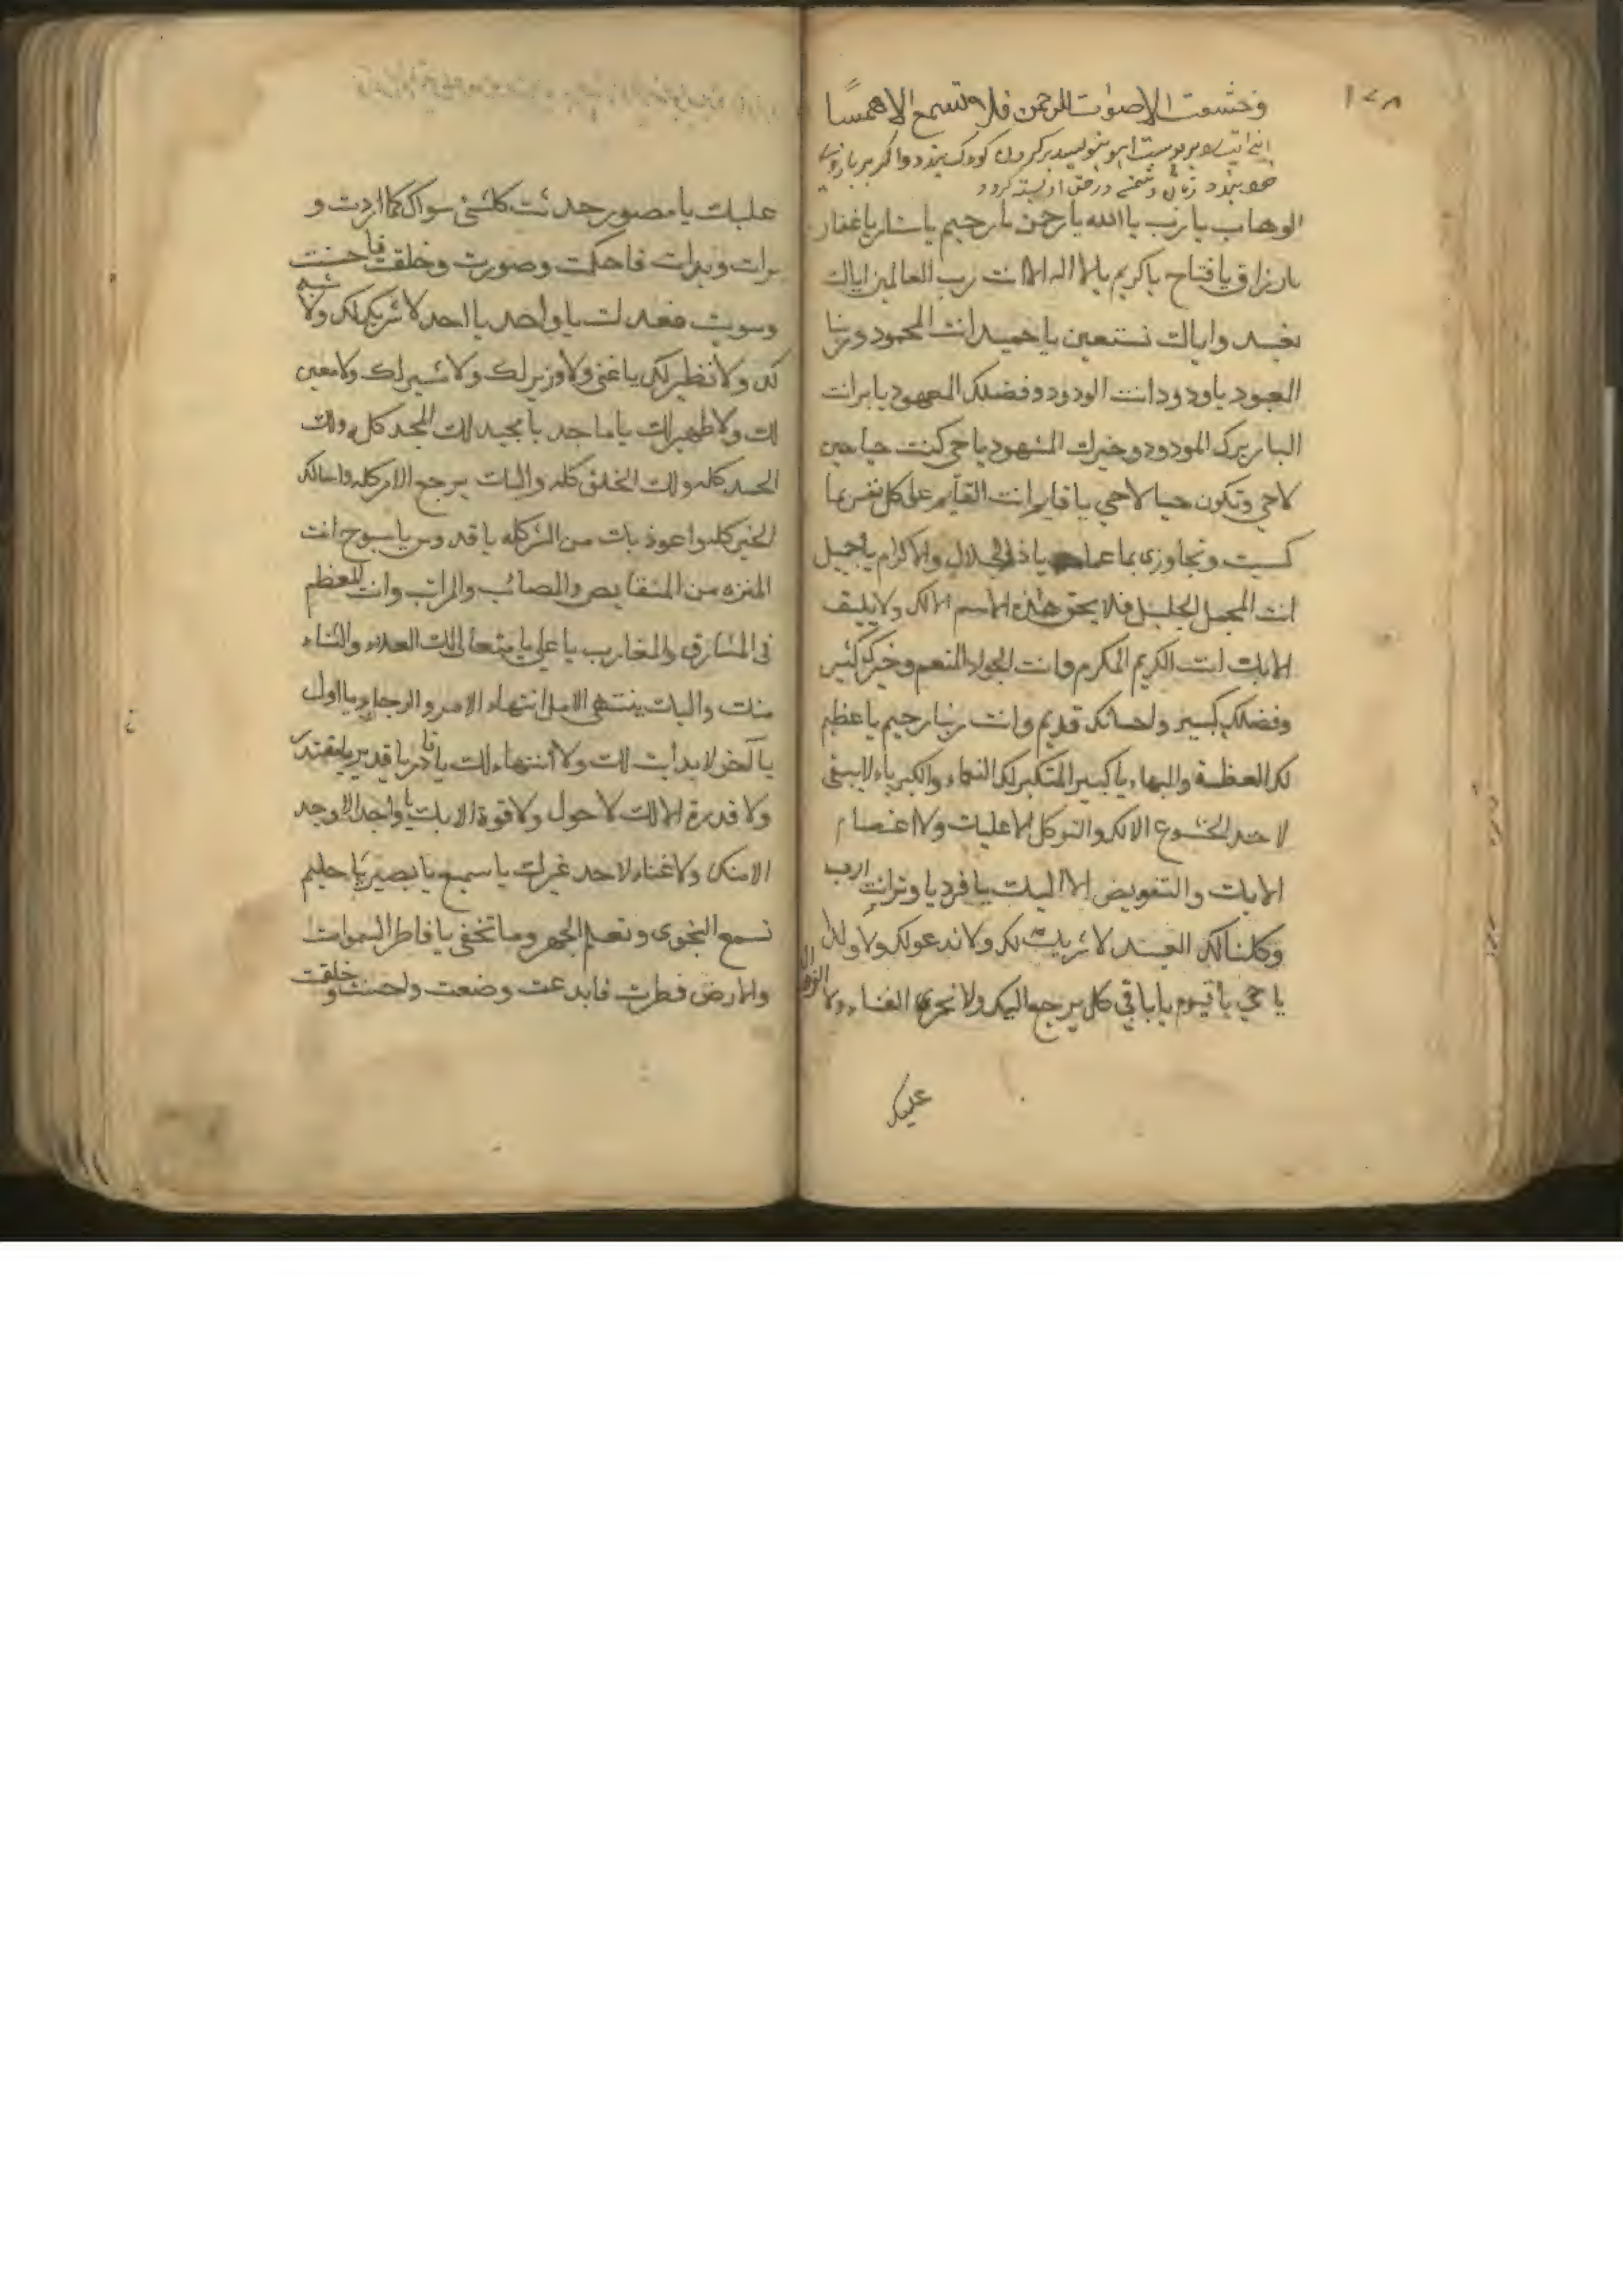 ١٧٨
وخشعت الاصوات للرحمن فلا تسمع الا همسا
بر پوست اهو بنويسد بر كردن كودك بندد واكر بر بازوى
خود بندد زبان در حق او بسته كردد
الوهاب يا رب يا الله يا رحمن يا رحيم يا ستار يا غفار
يا رزاق يا فتاح يا كريم يا لا اله الا انت رب العالمين اياك
نعبد واياك نستعين يا حميد انت المحمود وربنا
المعبود يا ودود انت الودود وفضلك المعهود يا بر انت
البار برك المودود وخيرك المشهود يا حي كنت حيا حين
لا حي وتكون حيا لا حي يا قايم انت القايم على كل نفس بما
كسبت وتجاوزى بما عملت يا ذا الجلال والاكرام يا جميل
انت المجمل الجليل فلا يحق هذه الاسم الا لك ولا يليق
الا بك انت الكريم المكرم وانت الجواد المنعم وخيرك كثير
وفضلك كبير واحسانك قديم وانت ربنا رحيم يا عظيم
لك العظمة والبهاء يا كبير المتكبر لك النعماء والكبرياء لا ينبغى
لاحد الخشوع الا لك والتوكل الا عليك ولا اعتصام
الا بك والتفويض الا اليك يا فرد يا وتر انت الرب
وكلنا لك العبيد لا شريك لك ولا ند عولك ولا ولد
يا حي يا قيوم يا باقي كل يرجع اليك ولا الفناء ولا
عليك
عليك يا مصور حدثت كل شئ سواك كما اردت و
برات وبدات فاحكمت وصورت وخلقت فاحسنت
وسويت فعدلت يا واحد يا احد لا شريك لك ولا شبيه
لك ولا نظير لك يا غنى ولا وزير لك ولا مشير لك ولا معين
لك ولا ظهير لك يا ماجد يا مجيد لك المجد كله ولك
الحمد كله ولك الخلق كله واليك يرجع الامر كله واسالك
الخير كله واعوذ بك من الشر كله يا قدوس يا سبوح انت
المنزه من النقايص والمصائب وانت المعظم
فى المشارق والمغارب يا علي يا متعالى لك العلاء والثناء
منك واليك ينتهى الامل انتهاء الامر والرجاء ويا اول
يا آخر لا بدأت لك ولا انتهاء لك يا قادر يا قدير يا مقتدر
ولا قدرة الا لك لا حول ولا قوة الا بك يا واجد لا وجد
الا منك ولا غناء لاحد غيرك يا سميع يا بصير يا حليم
تسمع النجوى وتعلم الجهر وما تخفى يا فاطر السموات
والارض فطرت فابدعت وصنعت واحسنت وخلقت